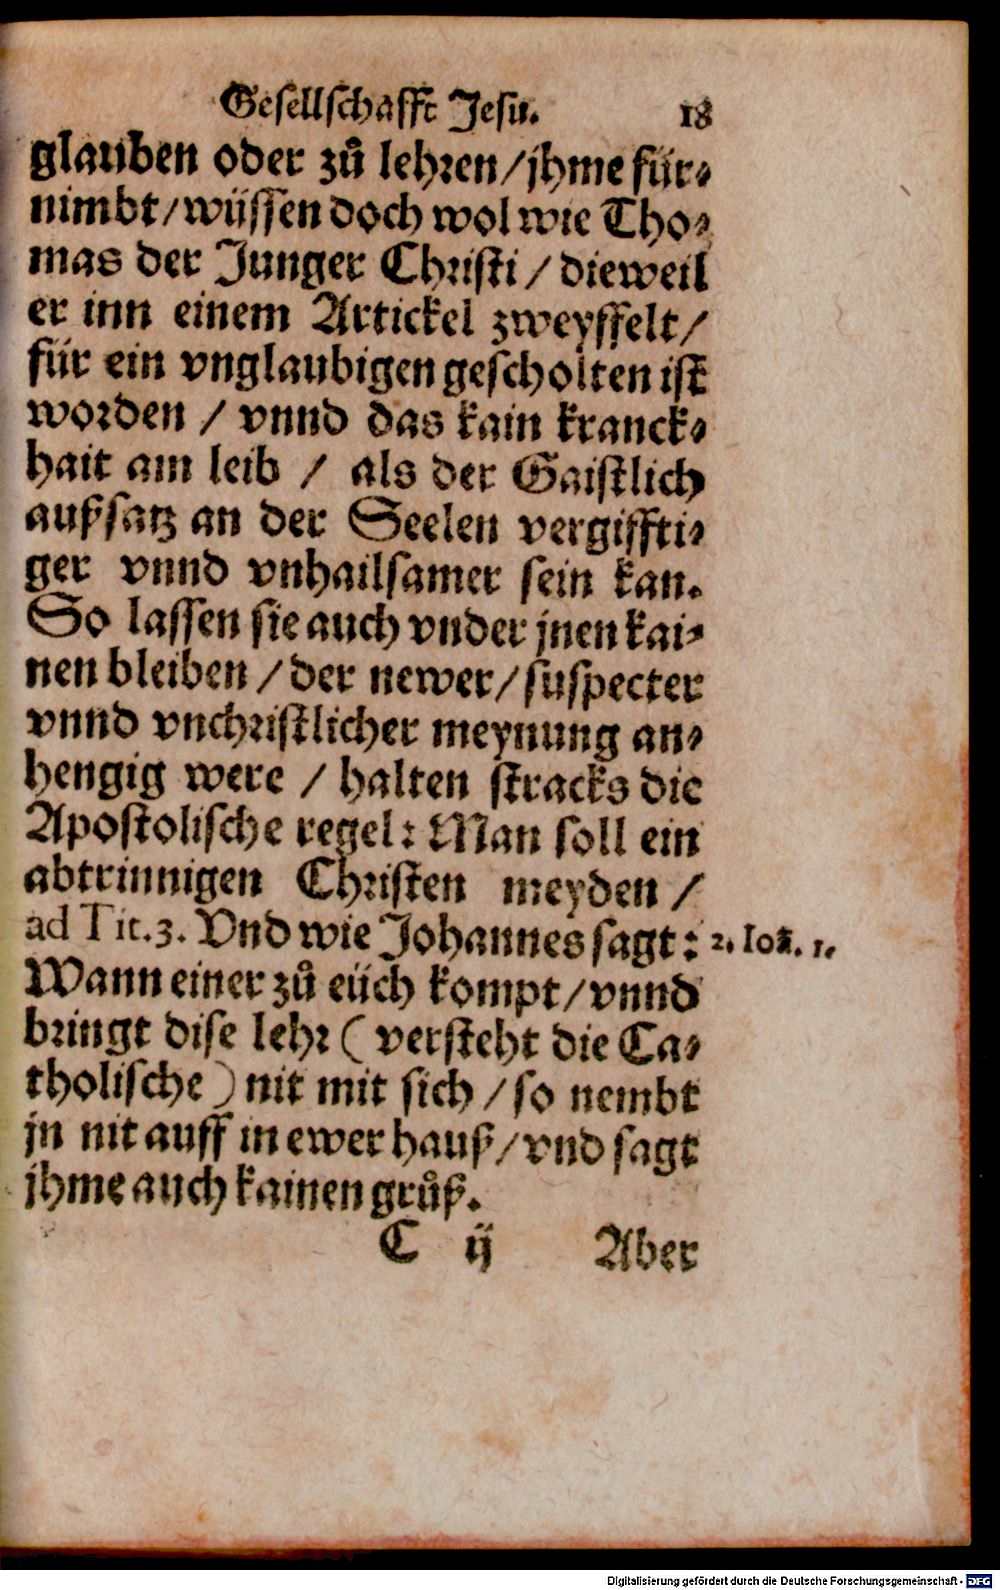 Gesellschafft Jesu. 18
glauben oder zuͦ lehren/jhme für-
nimbt/wüssen doch wol wie Tho-
mas der Junger Christi/dieweil
er inn einem Artickel zweyffelt/
für ein vnglaubigen gescholten ist
worden/vnnd das kain kranck-
hait am leib/als der Gaistlich
außsatz an der Seelen vergiffti-
ger vnnd vnhailsamer sein kan.
So lassen sie auch vnder jnen kai-
nen bleiben/der newer/suspecter
vnnd vnchristlicher meynung an-
hengig were/halten stracks die
Apostolische regel: Man soll ein
abtrinnigen Christen meyden/
ad Tit.3. Vnd wie Johannes sagt: 2. Ioã. 1.
Wann einer zuͦ eüch kompt/vnnd
bringt dise lehr (versteht die Ca-
tholische) nit mit sich/so nembt
jn nit auff in ewer hauß/vnd sagt
jhme auch kainen gruͦß.
C ij Aber
Digitalisierung gefördert durch die Deutsche Forschungsgemeinschaft - DFG